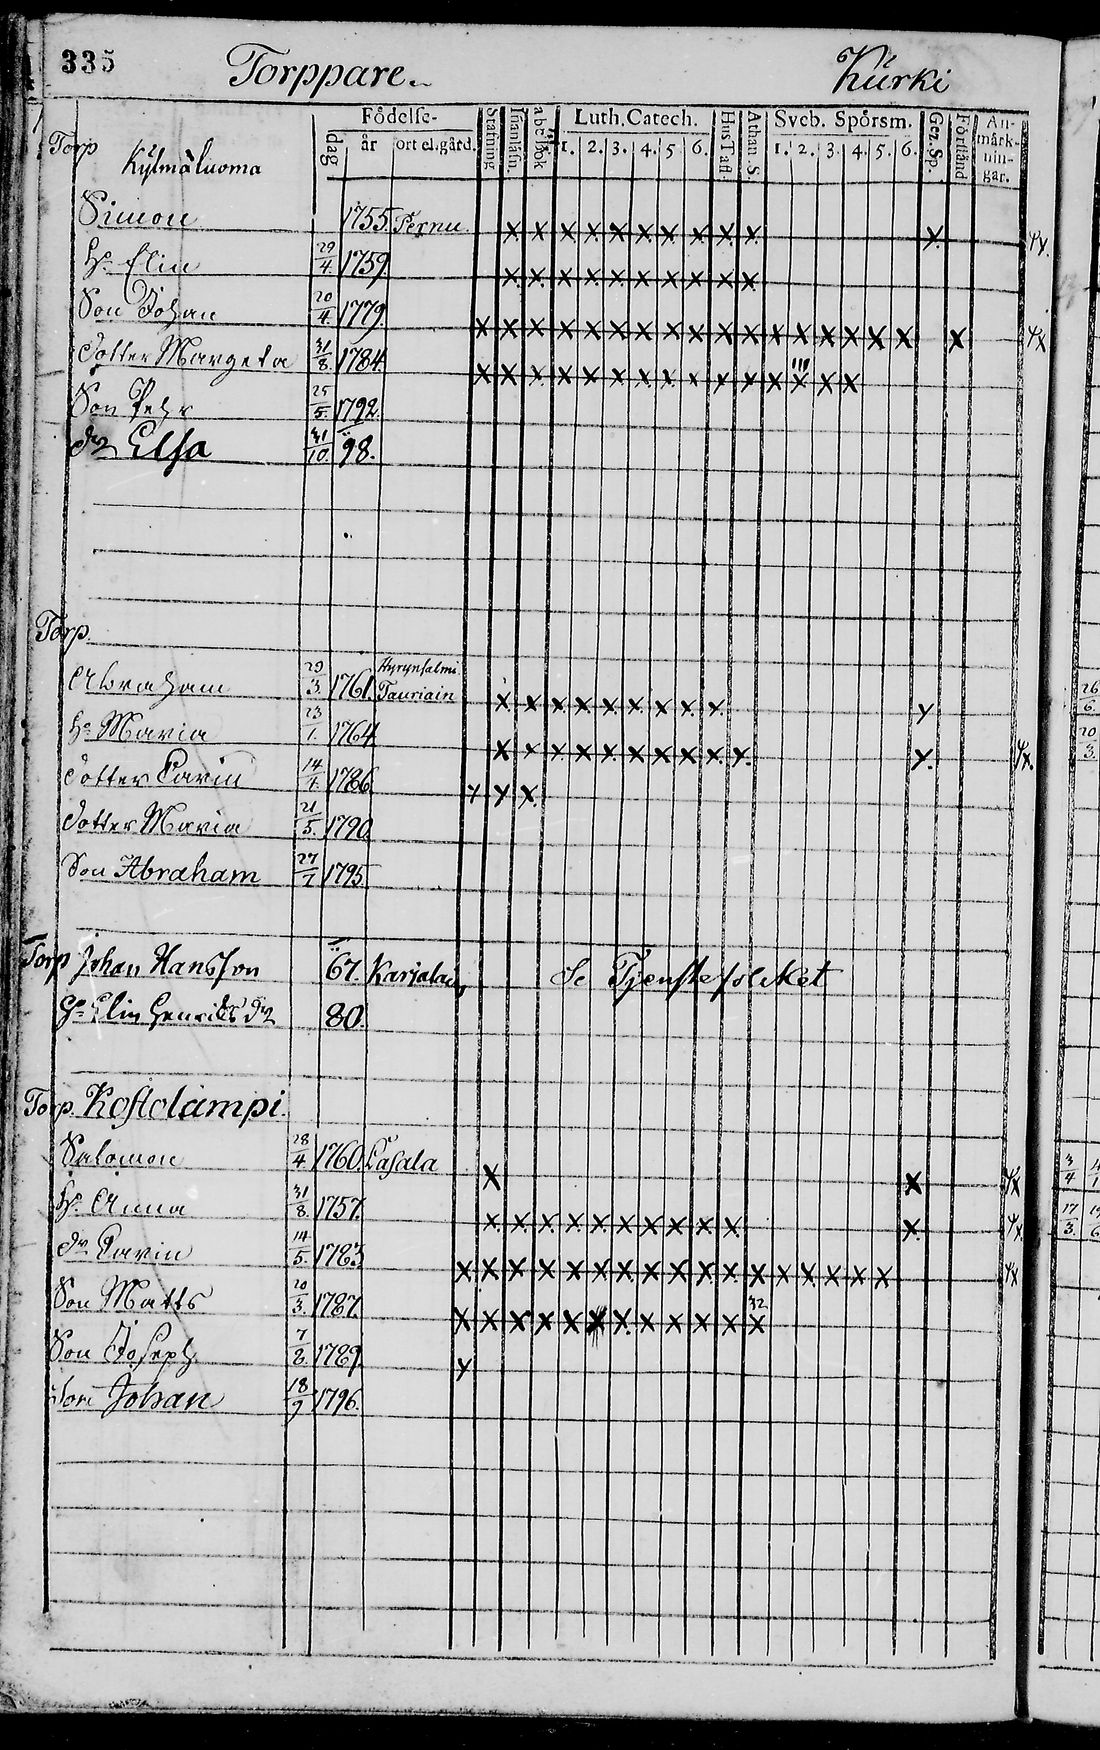 335 Torppare. Kurki
Födelse- Stafning Inanläsn. abc Bok Luth. Catech. Hus Tafl. Athan. S. Sveb. Spörsm. Gez. Sp. Förstånd An-märk-nin-gar.
dag år ort el. gård. 1. 2. 3. 4. 5. 6. 1. 2. 3. 4. 5. 6.
Torp Kylmäluoma
Simon 1755 Pernu x x x x x x x x x x x
H. Elin 29/4. 1759 x x x x x x x x x x
Son Johan 20/4. 1779. x x x x x x x x x x x x x x x x x x
Dotter Margeta 31/8. 1784. x x x x x x x x x x x x x x x
Son Pehr 25/5. 1792.
dr Elsa 31/10. 98.
Torp.
Abraham 29/3. 1761. Hyrynsalmi Tauriain x x x x x x x x x y
H. Maria 23/1. 1764 x x x x x x x x x x y.
Dotter Carin 14/4. 1786 x y x
Dotter Maria 21/5. 1790.
Son Abraham 27/7 1795
Torp Johan Hansson 67. Karjalai Se Tjenstefolket
H. Elin Henricks dr 80.
Torp. Kostolampi.
Salomon 28/4 1760. Lasala x x
H. Anna 31/8. 1757. x x x x x x x x x x x
dr Carin 14/5. 1783 x x x x x x x x x x x x x x x x x
Son Matts 20/3. 1787. x x x x x x x x x x x x 32
Son Joseph 7/8. 1789 y
Son Johan 18/9 1796.